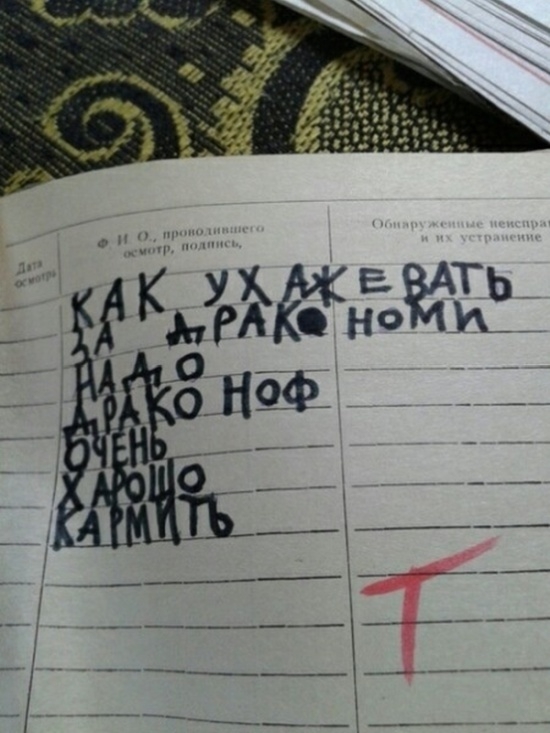 Дата
осмотра
Ф. И. О., проводившего
осмотр, подпись,
Обнаруженные неиспра
и их устранение
КАК УХАЖЕВАТЬ
ЗА ДРАКОНОМИ
НАДО
ДРАКОНОФ
ОЧЕНЬ
ХАРОШО
КАРМИТЬ
Т